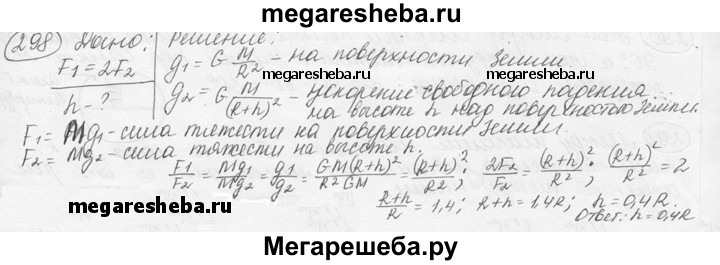 megaresheba.ru
298 Дано: Решение:
F1 = 2F2
h - ?
g1 = G M/R² - на поверхности Земли
megaresheba.ru megaresheba.ru
g2 = G M/(R+h)² - ускорение свободного падения
на высоте h над поверхностью Земли.
F1 = Mg1 - сила тяжести на поверхности Земли.
F2 = Mg2 - сила тяжести на высоте h.
F1/F2 = Mg1/Mg2 = g1/g2 = GM(R+h)²/R²GM = (R+h)²/R²; 2F2/F2 = (R+h)²/R²; (R+h)²/R² = 2
megaresheba.ru
(R+h)/R = 1,4; R+h = 1,4R; h = 0,4R.
Ответ: h = 0,4R
Мегарешеба.ру